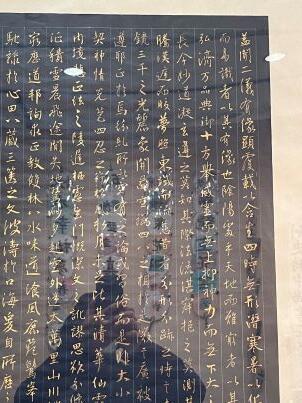 蓋聞二儀有像顯覆載以含生四時無形潛寒暑以化
而易識者以其有像也陰陽處乎天地而難窮者以其
弘濟万品典御十方舉威靈而無上抑神力而無下大
長今妙道凝玄遵之莫知其際法流湛寂挹之莫測其
騰漢庭而皎夢照東域而流慈昔者分形分跡之時
鏡三千之光麗象開圖空端四八之相於是微言廣被
遵邪正於焉紛糺所以空有之論或習俗而是非大小
契神情先苞四忍之行松風水月未足比其清華仙露
內境悲正法之陵遲栖慮玄門慨深文之訛謬思欲分條
征積雪晨飛途間失地驚砂夕起空外迷天萬里山川
窮歷道邦詢求正教雙林八水味道湌風鹿苑鷲峯
馳驟於心田八藏三篋之文波濤於口海爰自所歷之